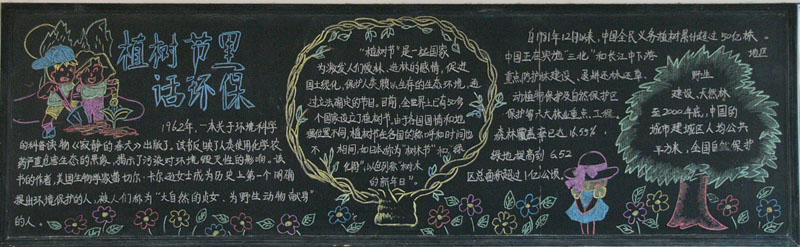 植树节里
话环保
1962年,一本关于环境科学
的科普读物《寂静的春天》出版了,该书反映了人类使用化学农
药严重危害生态的景象,揭示了污染对环境毁灭性的影响。该
书的作者,美国生物学家蕾切尔·卡尔逊女士成为历史上第一个明确
提出环境保护的人,被人们称为“大自然的贞女,为野生动物献身”
的人。
“植树节”是一些国家
为激发人们爱林、造林的感情,促进
国土绿化,保护人类赖以生存的生态环境,通
过立法确定的节日。目前,全世界上已有50多
个国家设立了植树节。由于各国国情和地
理位置不同,植树节在各国的称呼和时间也
不相同,如日本称为“树木节”和“绿
化周”,以色列称“树木
的新年日”。
自1981年12月以来,中国全民义务植树累计超过50亿株。
中国正在实施“三北”和长江中下游地区
重点防护林建设、退耕还林还草、
动植物保护及自然保护区
保护等六大林业重点工程。
森林覆盖率已达16.55%
绿地提高到6.52
区总面积超1亿公顷。
野生
建设、天然林
至2000年底,中国的
城市建成区人均公共
平方米,全国自然保护